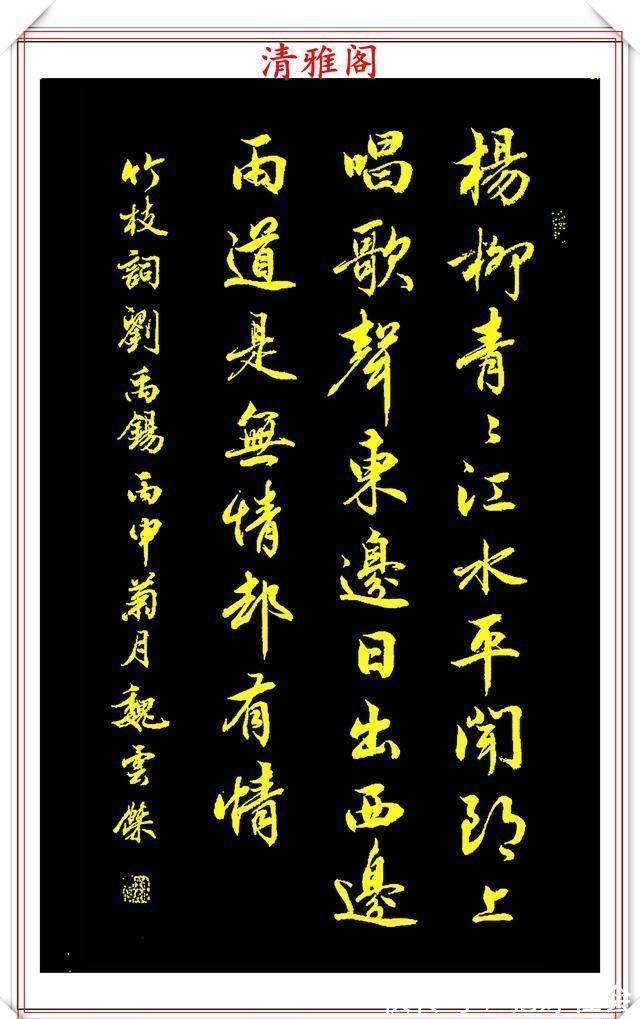 清雅阁
楊柳青〻江水平聞郎上
唱歌聲東邊日出西邊
雨道是無情却有情
竹枝詞劉禹錫丙申菊月魏雲傑